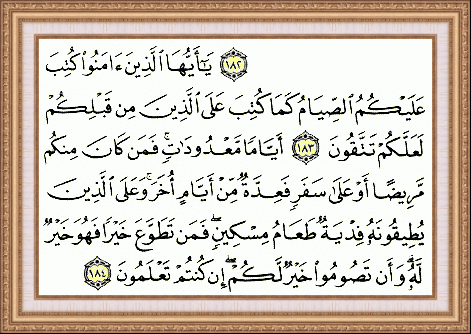 ١٨٢ يَٰٓأَيُّهَا ٱلَّذِينَ ءَامَنُوا۟ كُتِبَ
عَلَيْكُمُ ٱلصِّيَامُ كَمَا كُتِبَ عَلَى ٱلَّذِينَ مِن قَبْلِكُمْ
لَعَلَّكُمْ تَتَّقُونَ ١٨٣ أَيَّامًا مَّعْدُودَٰتٍ ۚ فَمَن كَانَ مِنكُم
مَّرِيضًا أَوْ عَلَىٰ سَفَرٍ فَعِدَّةٌ مِّنْ أَيَّامٍ أُخَرَ ۚ وَعَلَى ٱلَّذِينَ
يُطِيقُونَهُۥ فِدْيَةٌ طَعَامُ مِسْكِينٍ ۖ فَمَن تَطَوَّعَ خَيْرًا فَهُوَ خَيْرٌ
لَّهُۥ ۚ وَأَن تَصُومُوا۟ خَيْرٌ لَّكُمْ ۖ إِن كُنتُمْ تَعْلَمُونَ ١٨٤